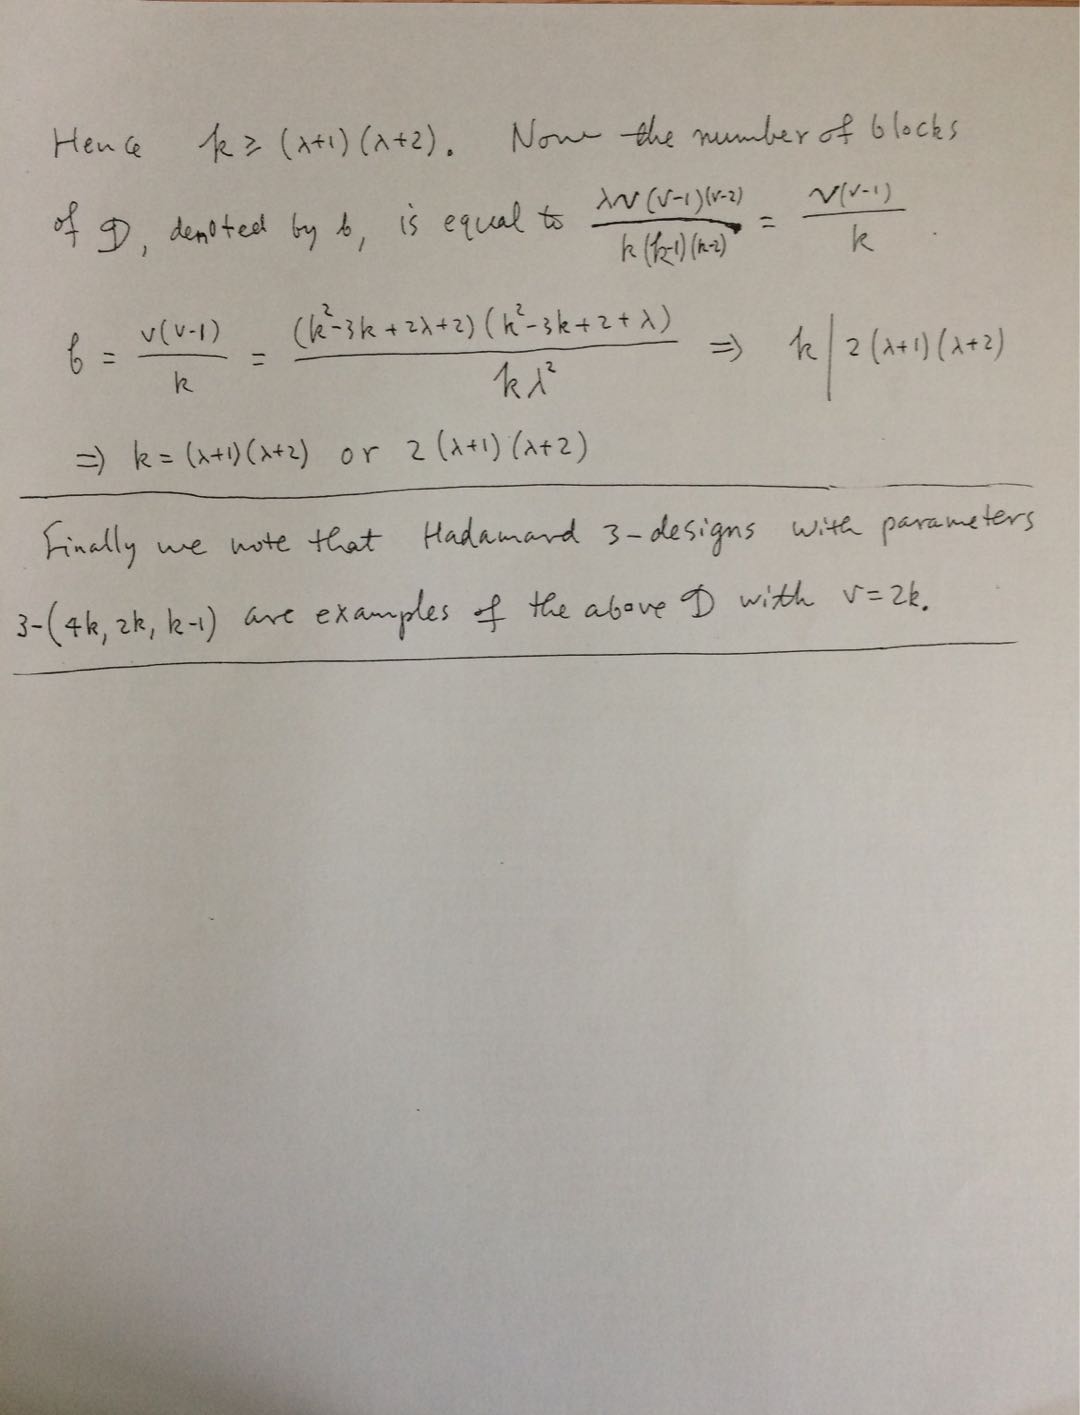 Hence k ≥ (λ+1)(λ+2). Now the number of blocks
of D, denoted by b, is equal to λv(v-1)(v-2) / k(k-1)(k-2) = v(v-1) / k .
b = v(v-1) / k = (k²-3k+2λ+2)(k²-3k+2+λ) / kλ² ⇒ k | 2(λ+1)(λ+2)
⇒ k = (λ+1)(λ+2) or 2(λ+1)(λ+2)
Finally we note that Hadamard 3-designs with parameters
3-(4k, 2k, k-1) are examples of the above D with v=2k.